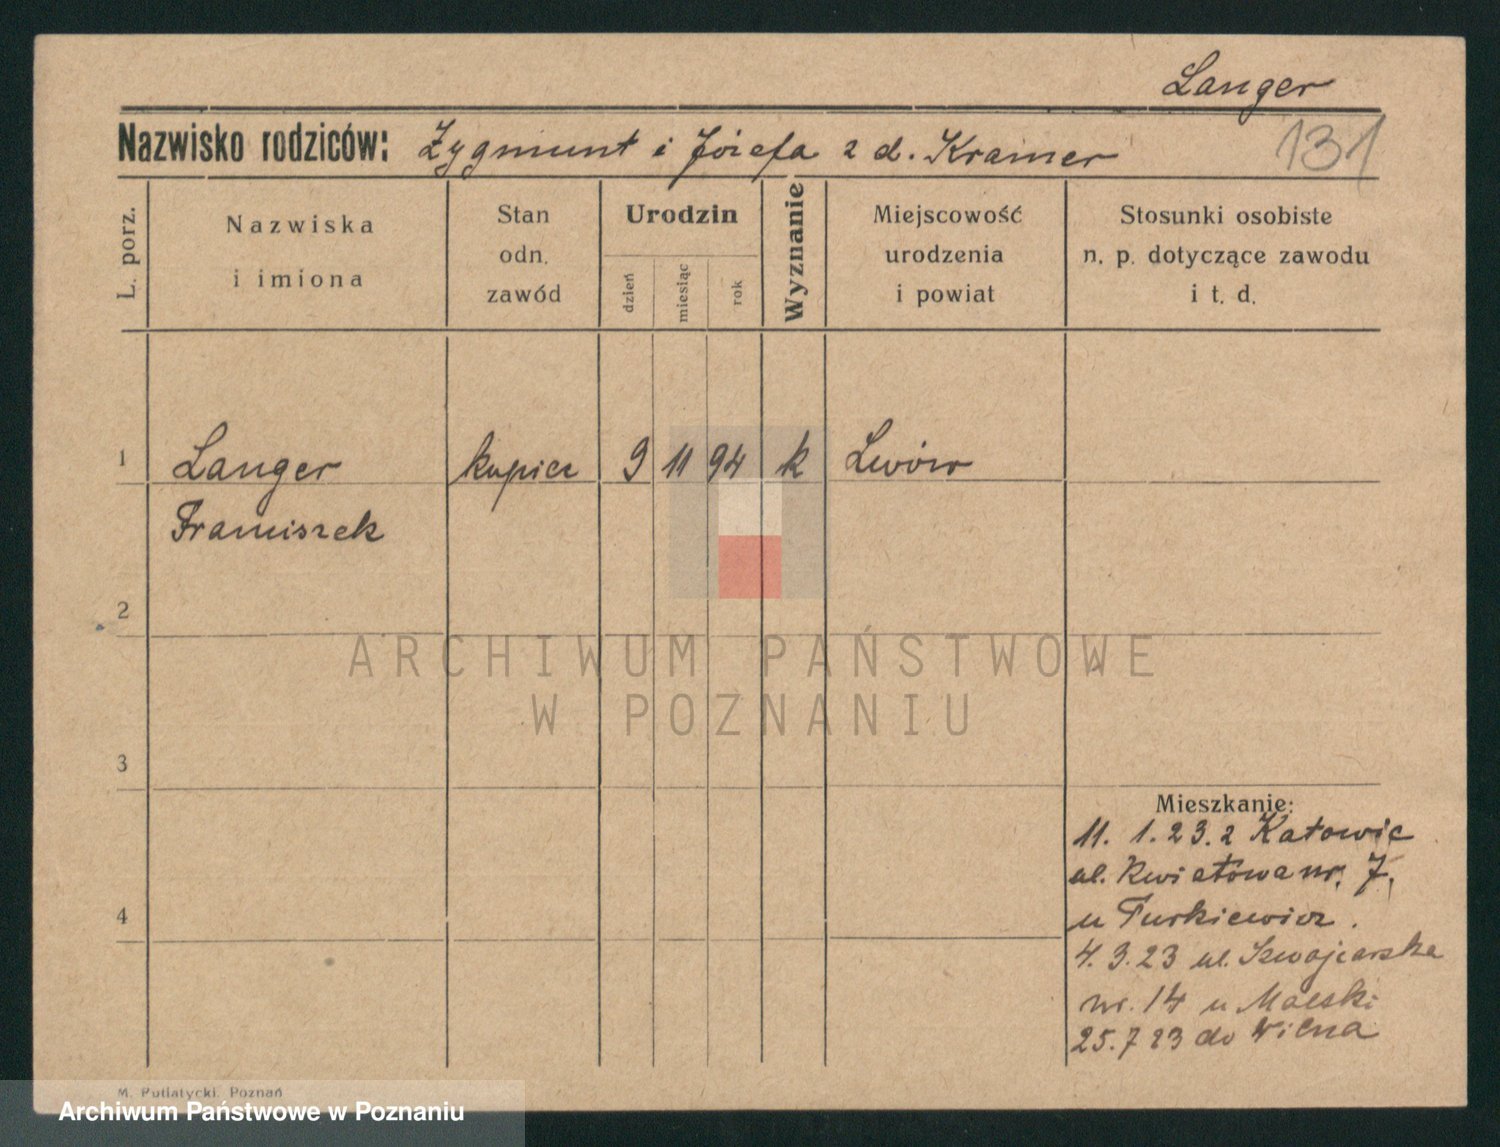 Langer
Nazwisko rodziców: Zygmunt i Józefa z d. Kramer
131
L. porz.
Nazwiska
i imiona
Stan
odn.
zawód
Urodzin
dzień
miesiąc
rok
Wyznanie
Miejscowość
urodzenia
i powiat
Stosunki osobiste
n. p. dotyczące zawodu
i t. d.
1 Langer kupiec 9 11 94 k Lwów
Franciszek
2
ARCHIWUM PAŃSTWOWE
W POZNANIU
3
Mieszkanie:
11. 1. 23. z Katowic
ul. Kwiatowa nr. 7.
4
u Turkiewicz.
4. 3. 23 ul. Szwajcarska
nr. 14 u
25. 7 23 do Wilna
M. Putiatycki. Poznań
Archiwum Państwowe w Poznaniu